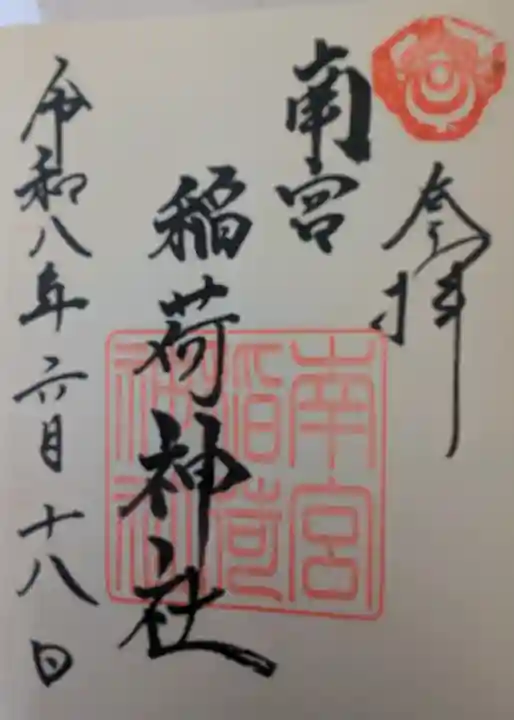 奉拝
南宮
稲荷神社
南宮
稲荷
神社
令和八年六月十八日